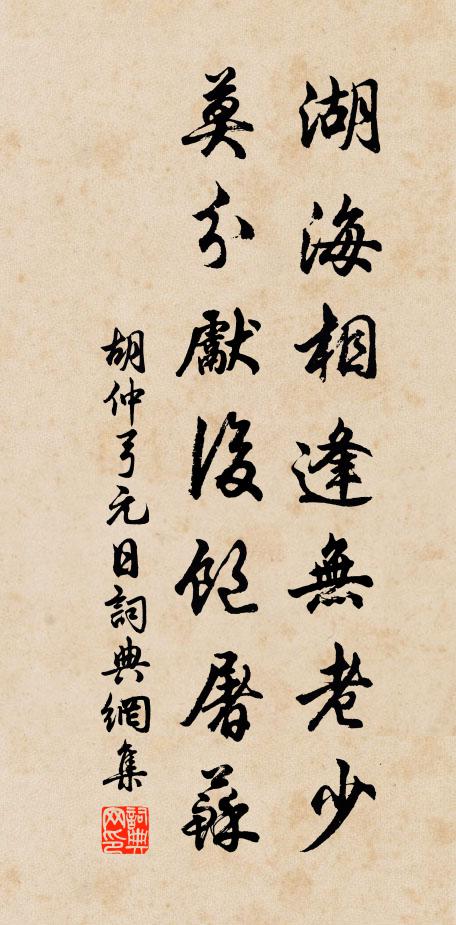 湖海相逢無老少
莫分獻後飽屠蘇
胡仲弓元日詞典網集
詞典网印